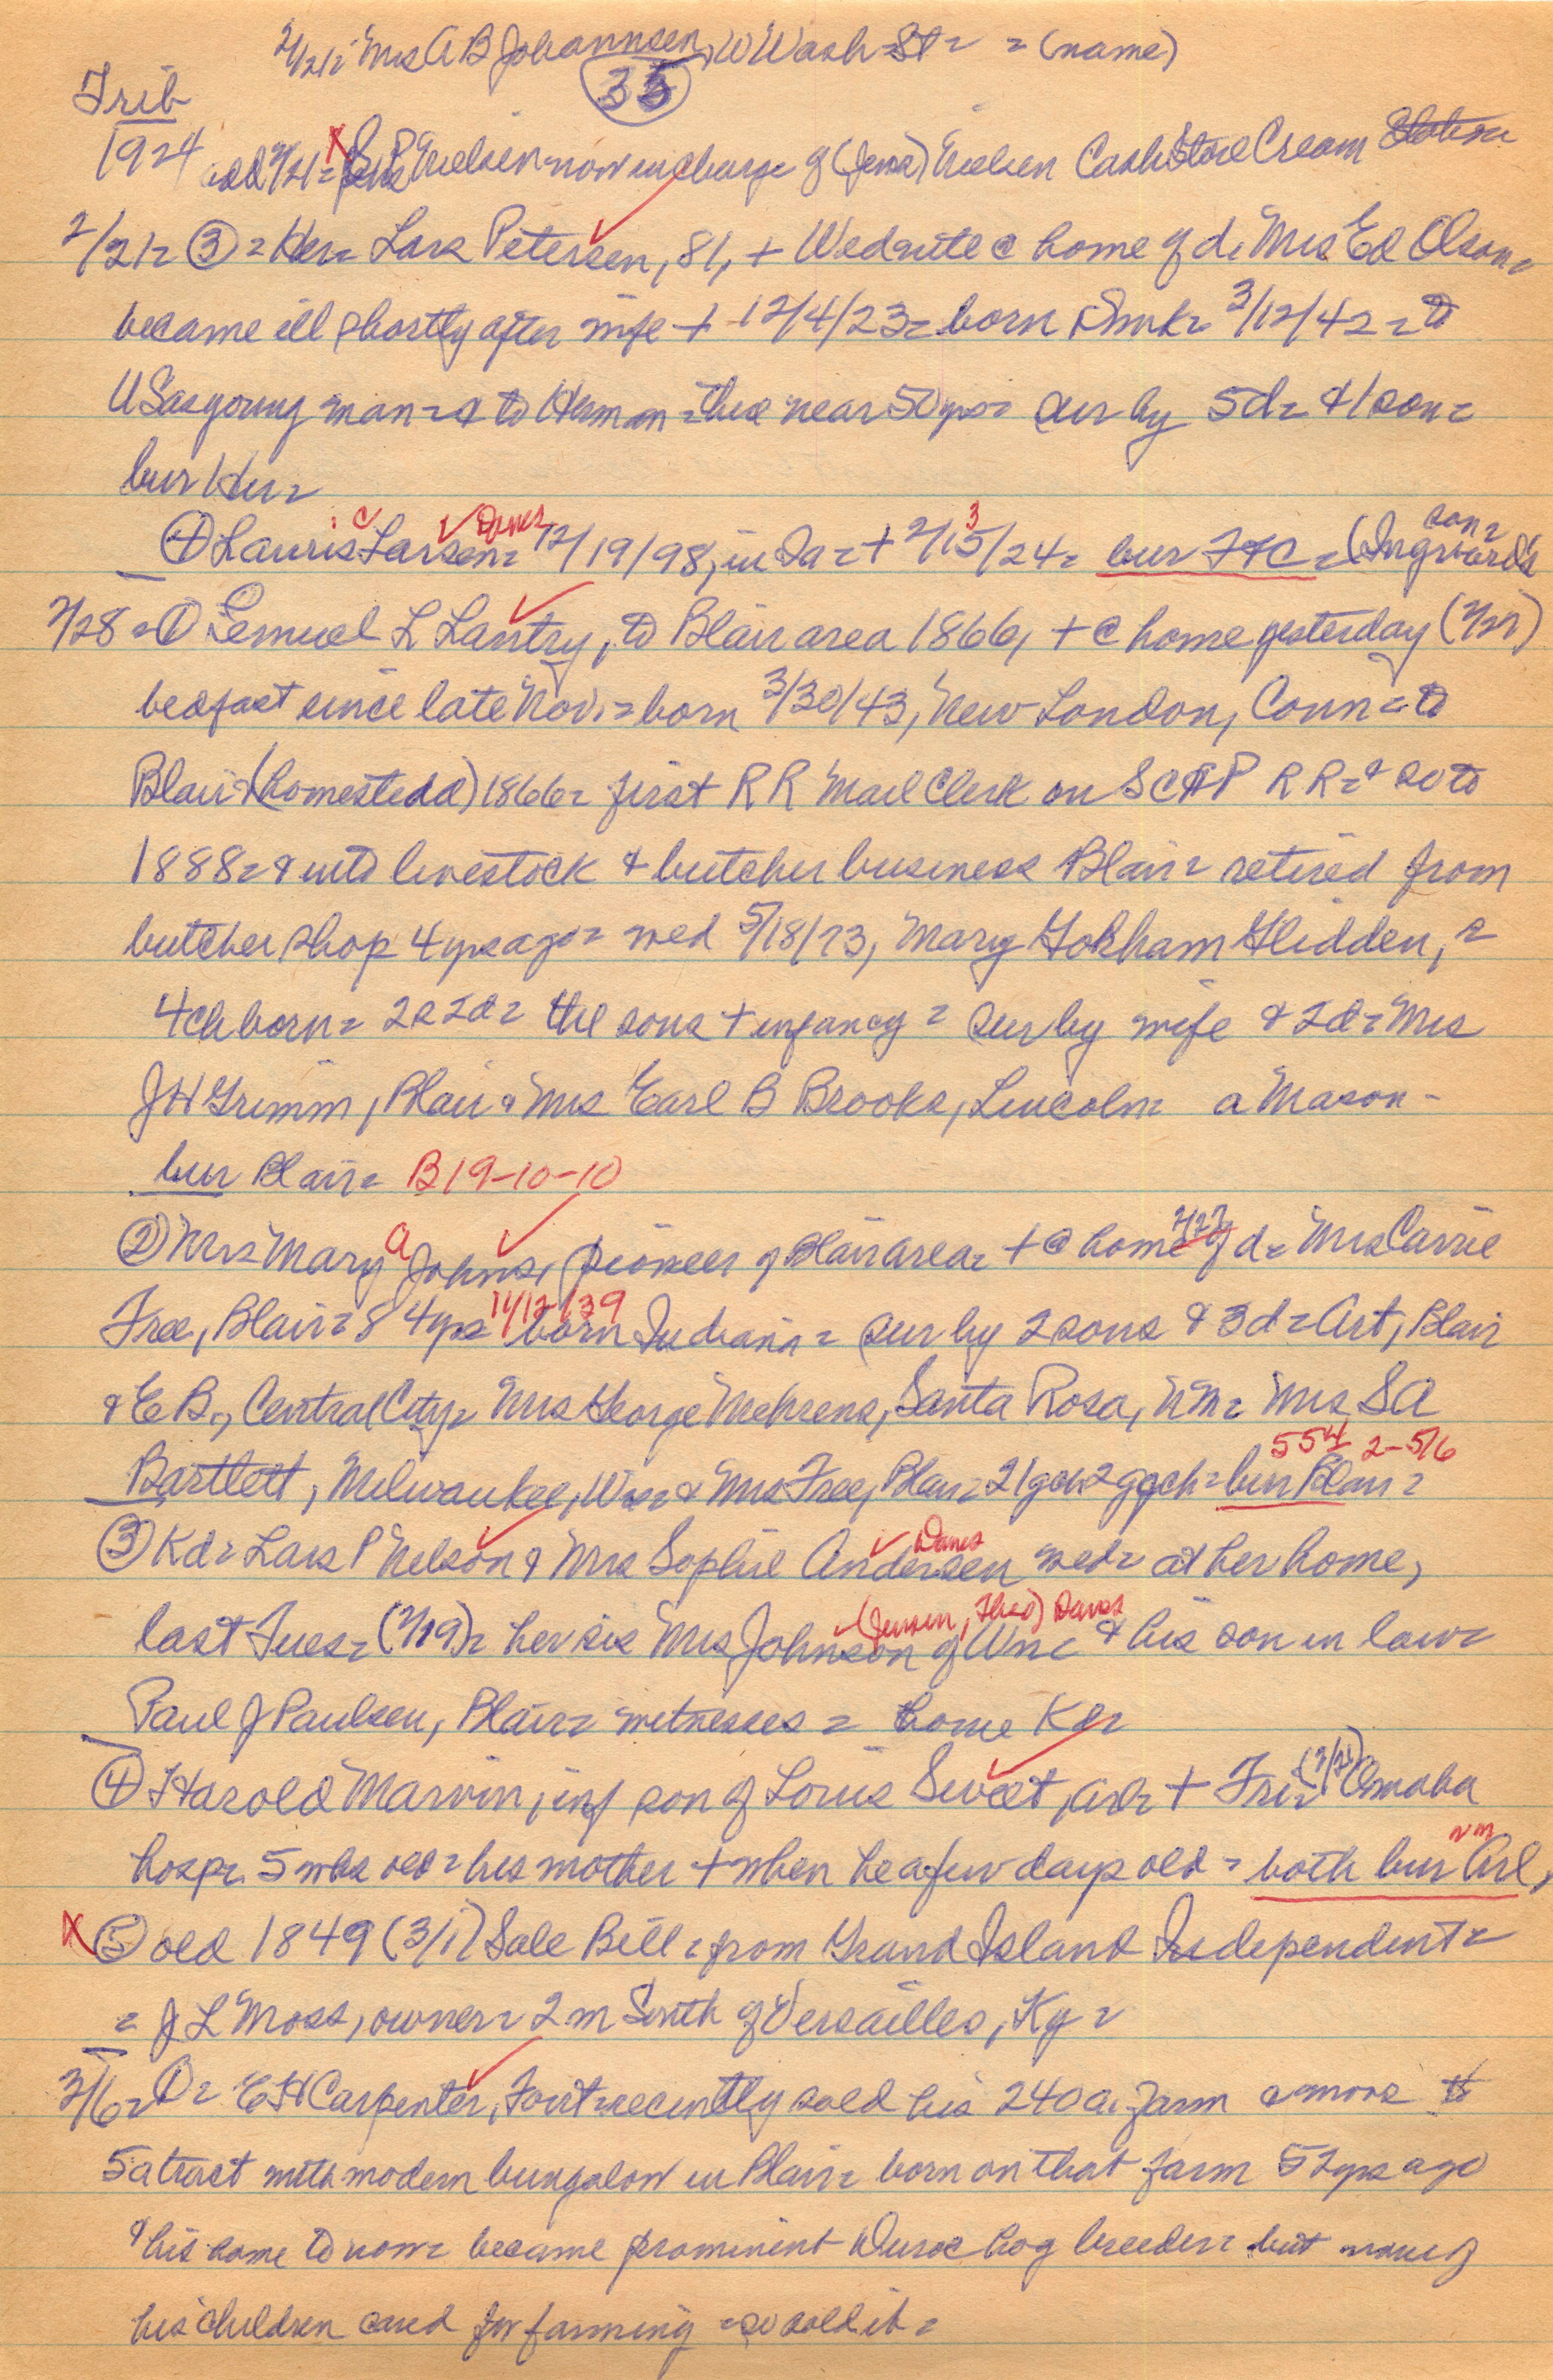 2/21= Mrs A B Johannsen, W Wash St = = (name)
35
Trib
1924 add 2/21= Nielsen now in charge of (Jens) Nielsen Cash Store Cream Station
2/21= ③ = Her= Lars Petersen, 81, + Wed nite @ home of d. Mrs Ed Olson=
became ill shortly after wife + 12/4/23= born Dmk= 3/12/42= to
US as young man= & to Herman = there near 50 yrs= sur by 5d= & 1 son=
bur Her=
④ Lauris C Larsen= Danes 12/19/98, in Ia= + 2/13/24= bur FTC = (Ingvard's son=
2/28= ① Lemuel L Lantry, to Blair area 1866, + @ home yesterday (2/27)
bedfast since late Nov.= born 3/30/43, New London, Conn= to
Blair (homestedd) 1866= first R R Mail Clerk on SC&P R R= & so to
1888= & into livestock & butcher business Blair= retired from
butcher shop 4 yrs ago= wed 5/18/73, Mary Gorham Glidden, =
4 ch born= 2s 2d= the sons + infancy = sur by wife & 2d= Mrs
J H Grimm, Blair & Mrs Earl B Brooks, Lincoln= a Mason-
bur Blair= B 19-10-10
② Mrs Mary A Johns, pioneer of Blair area= + @ home 2/27 of d= Mrs Carrie
Free, Blair= 84 yrs 11/12/39 born Indiana= sur by 2 sons & 3d= Art, Blair
& E B., Central City= Mrs George Mehrens, Santa Rosa, NM= Mrs SA
Bartlett, Milwaukee, Wis= & Mrs Free, Blair= 21 gch 2 ggch= bur Blair= 554 2-5/6
③ Kd= Lars P Nelson & Mrs Sophie Andersen Danes wed= at her home,
last Tues= (2/19)= her sis Mrs Johnson (Jensen, Theo) Danes of Wn= & his son in law=
Paul J Paulsen, Blair= witnesses = home Kd=
④ Harold Marvin, inf son of Loris Sweet, Arl= + Fri= Omaha
hosp= 5 wks old= his mother + when he a few days old= both bur Arl, nm
X ⑤ old 1849 (3/1) Sale Bill= from Grand Island Independent=
= J L Moss, owner= 2 m South of Versailles, Ky=
3/6= ① = E H Carpenter, Font= recently sold his 240 a. farm & move to
5 a tract with modern bungalow in Blair= born on that farm 52 yrs ago
& his home to now= became prominent Duroc hog breeder= but none of
his children cared for farming = so sold it =